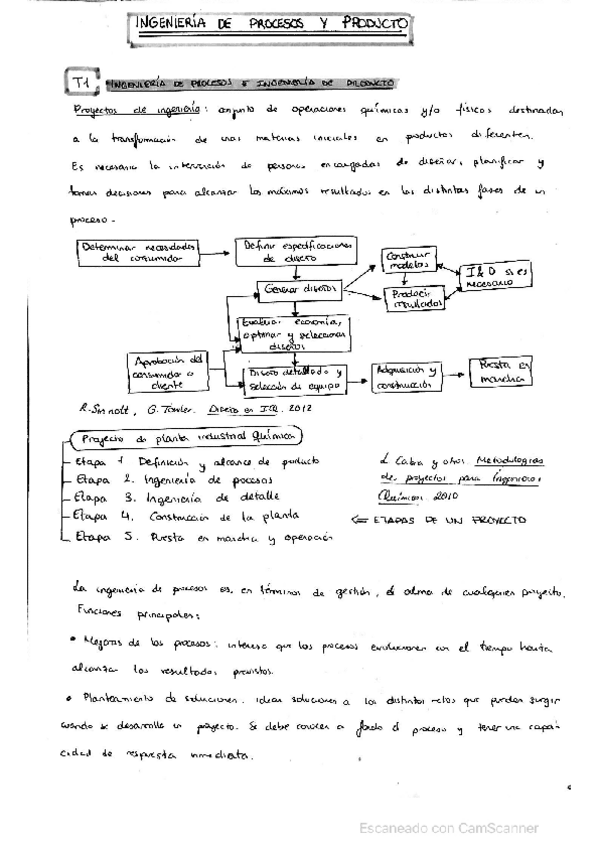 INGENIERÍA DE PROCESOS Y PRODUCTO
T1 INGENIERÍA DE PROCESOS E INGENIERÍA DE PRODUCTO
Proyectos de ingeniería: conjunto de operaciones químicas y/o físicas destinadas
a la transformación de unas materias iniciales en productos diferentes.
Es necesaria la intervención de personas encargadas de diseñar, planificar y
tomar decisiones para alcanzar los máximos resultados en las distintas fases de un
proceso.
Determinar necesidades
del consumidor
Definir especificaciones
de diseño
Construir
modelos
I&D si es
necesario
Generar diseños
Predecir
resultados
Evaluar economía,
optimar y seleccionar
diseños
Aprobación del
consumidor o
cliente
Diseño detallado y
selección de equipo
Adquisición y
construcción
Puesta en
marcha
R. Sinnott, G. Towler. Diseño en IQ. 2012
Proyecto de planta industrial Química
Etapa 1 Definición y alcance de producto
Etapa 2. Ingeniería de procesos
Etapa 3. Ingeniería de detalle
Etapa 4. Construcción de la planta
Etapa 5. Puesta en marcha y operación
L Cabra y otros Metodologías
de proyectos para Ingenieros
Químicos. 2010
⇐ ETAPAS DE UN PROYECTO
La ingeniería de procesos es, en términos de gestión, el alma de cualquier proyecto.
Funciones principales:
• Mejoras de los procesos: interesa que los procesos evolucionen con el tiempo hasta
alcanzar los resultados previstos.
• Planteamiento de soluciones. idear soluciones a los distintos retos que puedan surgir
cuando se desarrolla un proyecto. Se debe conocer a fondo el proceso y tener una capa-
cidad de respuesta inmediata.
Escaneado con CamScanner